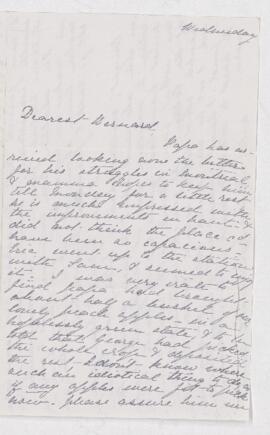 Wednesday
Dearest Bernard.
Papa has ar-
rived looking none the better
for his struggles in Montreal,
& mamma hopes to keep him
till Monday for a little rest
He is much impressed with
the improvements in
did not think the place
have been so capacious -
went up to the station
with & seemed to
it - I was very irate to
find papa had brought
about half a bushel of my
lovely peach apples in a
hopelessly green state, & to
that George had picked
the whole crop & deposited
the rest I don't know where
such an idiotic thing to do
if any apples were fit to pick
now - please assure him